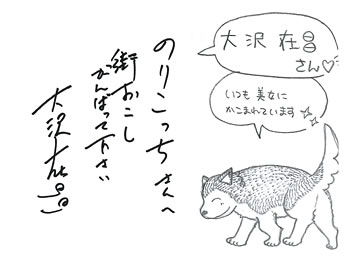 大沢 在昌
さん♡
いつも 美女に
かこまれています
のりこっちさんへ
街おこし
がんばって下さい
大沢在昌